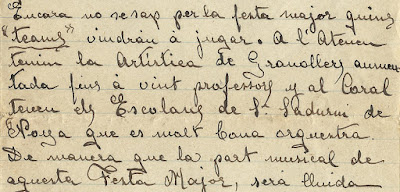 Encara no se sap per la festa major quins
"teams" vindrán á jugar. A l'Ateneu
tenim la Artística de Granollers aumen-
tada fins á vint professors y al Coral
teuen els Escolans de St Sadurní de
Noya que es molt bona orquestra.
De manera que la part musical de
aquesta Festa Major, será lluida